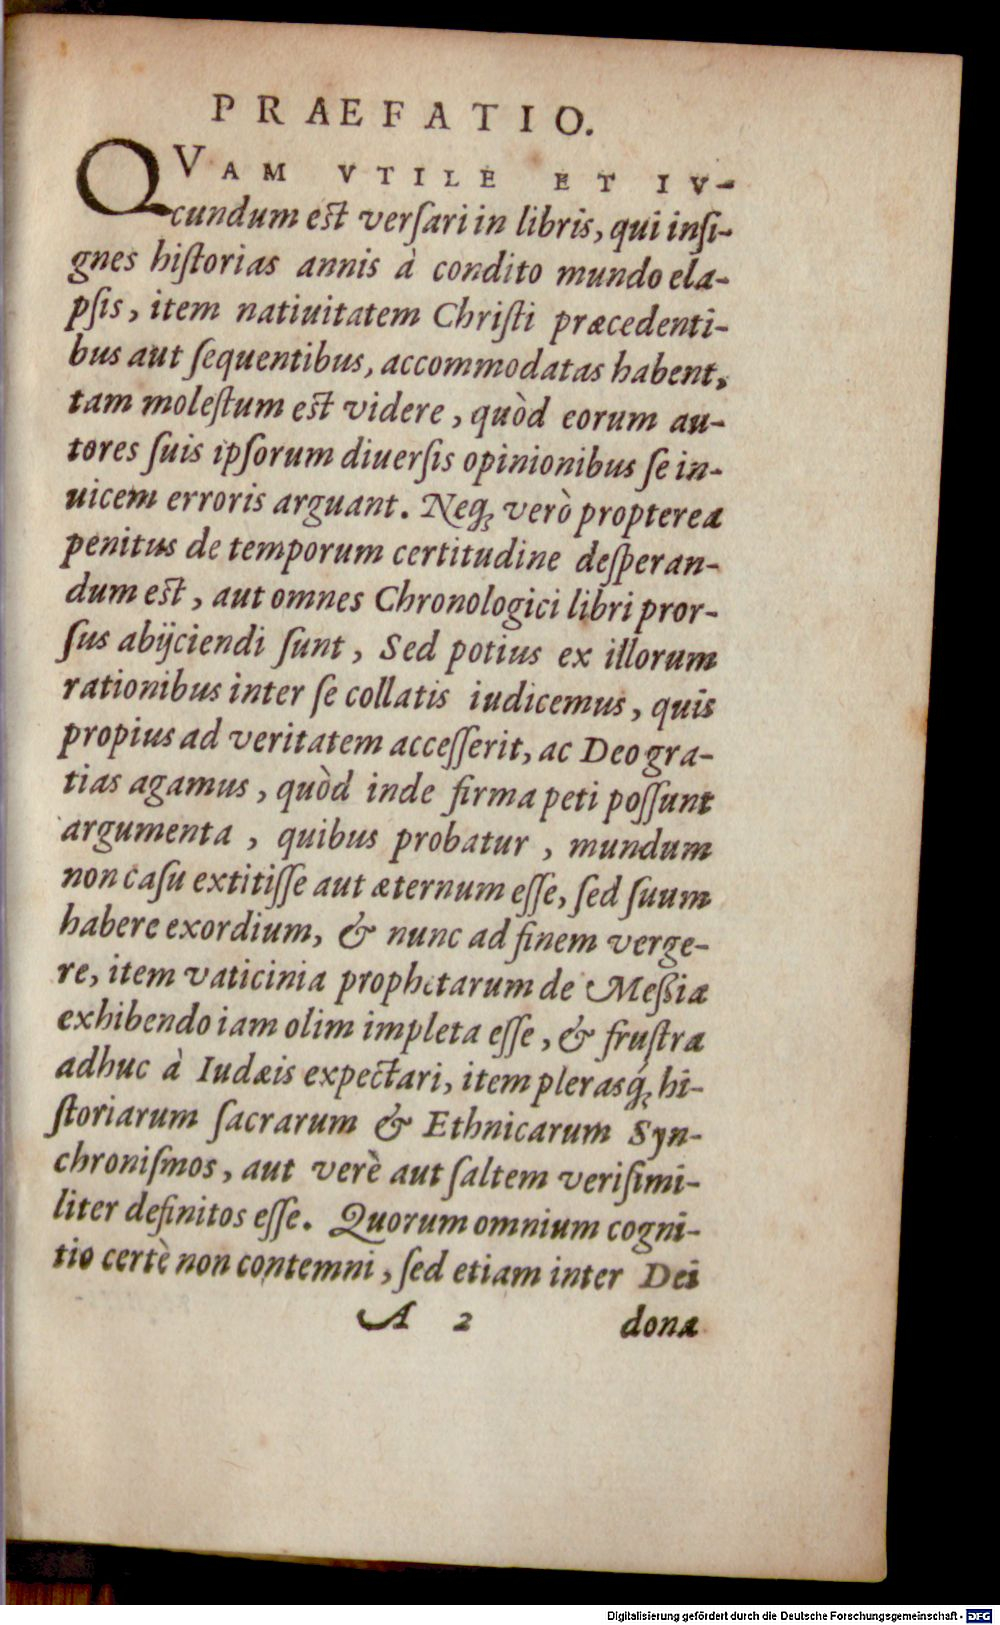 PRAEFATIO.
QVAM VTILE ET IV-
cundum est verſari in libris, qui inſi-
gnes hiſtorias annis à condito mundo ela-
pſis, item natiuitatem Chriſti præcedenti-
bus aut ſequentibus, accommodatas habent,
tam moleſtum est videre, quòd eorum au-
tores ſuis ipſorum diuerſis opinionibus ſe in-
uicem erroris arguant. Neqꝫ verò propterea
penitus de temporum certitudine deſperan-
dum est, aut omnes Chronologici libri pror-
ſus abijciendi ſunt, Sed potius ex illorum
rationibus inter ſe collatis iudicemus, quis
propius ad veritatem acceſſerit, ac Deo gra-
tias agamus, quòd inde firma peti poſſunt
argumenta, quibus probatur, mundum
non caſu extitiſſe aut æternum eſſe, ſed ſuum
habere exordium, & nunc ad finem verge-
re, item vaticinia prophetarum de Meßiæ
exhibendo iam olim impleta eſſe, & fruſtra
adhuc à Iudæis expectari, item plerasq́ꝫ hi-
ſtoriarum ſacrarum & Ethnicarum Syn-
chroniſmos, aut verè aut ſaltem veriſimi-
liter definitos eſſe. Quorum omnium cogni-
tio certè non contemni, ſed etiam inter Dei
A 2 dona
Digitalisierung gefördert durch die Deutsche Forschungsgemeinschaft - DFG